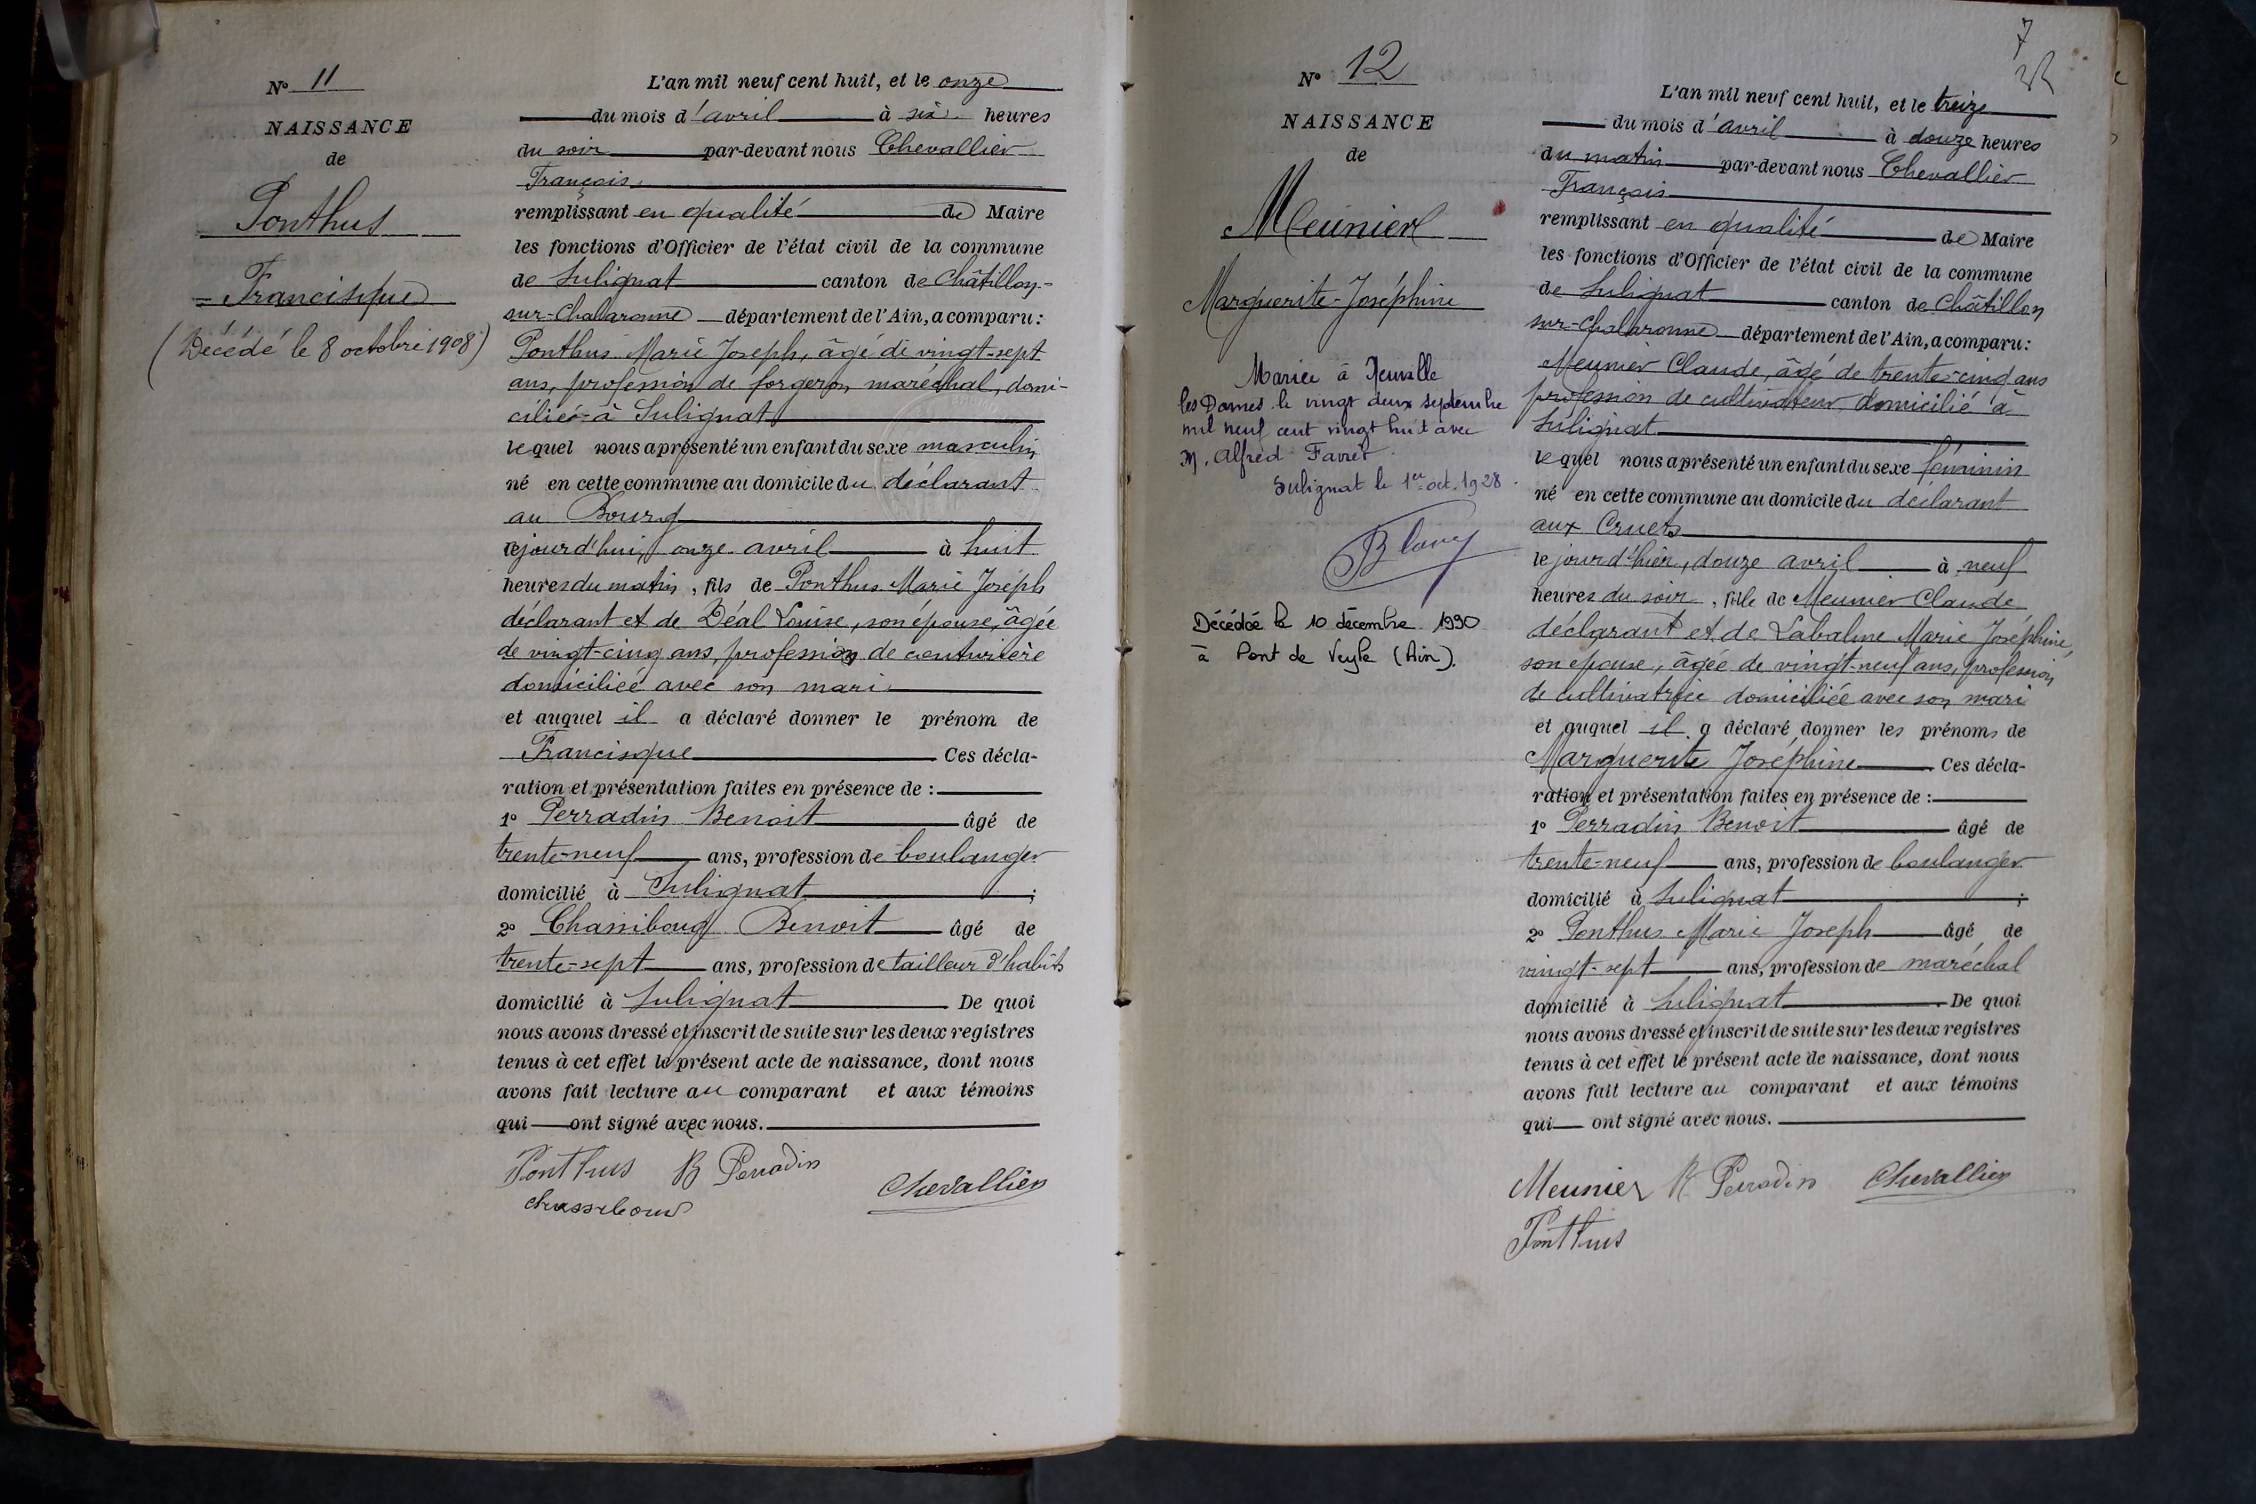 N° 11
NAISSANCE
de
Ponthus
Francisque
(Décédé le 8 octobre 1908)
L'an mil neuf cent huit, et le onze
du mois d'avril à six heures
du soir par-devant nous Chevallier
François
remplissant en qualité de Maire
les fonctions d'Officier de l'état civil de la commune
de Sulignat canton de Châtillon-
sur-Chalaronne département de l'Ain, a comparu :
Ponthus Marie Joseph, âgé de vingt-sept
ans, profession de forgeron maréchal, domi-
cilié à Sulignat
lequel nous a présenté un enfant du sexe masculin
né en cette commune au domicile du déclarant
au Bourg
cejourd'hui, onze avril à huit
heures du matin, fils de Ponthus Marie Joseph
déclarant et de Déal Louise, son épouse, âgée
de vingt-cinq ans, profession de couturière
domiciliée avec son mari
et auquel il a déclaré donner le prénom de
Francisque Ces décla-
ration et présentation faites en présence de :
1° Perradin Benoit âgé de
trente-neuf ans, profession de boulanger
domicilié à Sulignat ;
2° Chassiboud Benoit âgé de
trente-sept ans, profession de tailleur d'habits
domicilié à Sulignat De quoi
nous avons dressé et inscrit de suite sur les deux registres
tenus à cet effet le présent acte de naissance, dont nous
avons fait lecture au comparant et aux témoins
qui ont signé avec nous.
Ponthus B Perradin
Chevallier
7
N° 12
NAISSANCE
de
Meunier
Marguerite-Joséphine
Mariée à Neuville
les Dames le vingt deux septembre
mil neuf cent vingt huit avec
M. Alfred Favret.
Sulignat le 1er oct. 1928.
Décédée le 10 décembre 1990
à Pont de Veyle (Ain).
L'an mil neuf cent huit, et le treize
du mois d'avril à douze heures
du matin par-devant nous Chevallier
François
remplissant en qualité de Maire
les fonctions d'Officier de l'état civil de la commune
de Sulignat canton de Châtillon
sur-Chalaronne département de l'Ain, a comparu :
Meunier Claude, âgé de trente-cinq ans
profession de cultivateur, domicilié à
Sulignat
lequel nous a présenté un enfant du sexe féminin
né en cette commune au domicile du déclarant
aux Cruets
le jour d'hier, douze avril à neuf
heures du soir, fille de Meunier Claude
déclarant et de Labalme Marie Joséphine,
son épouse, âgée de vingt-neuf ans, profession
de cultivatrice domiciliée avec son mari
et auquel il a déclaré donner les prénoms de
Marguerite Joséphine Ces décla-
ration et présentation faites en présence de :
1° Perradin Benoit âgé de
trente-neuf ans, profession de boulanger
domicilié à Sulignat ;
2° Ponthus Marie Joseph âgé de
vingt-sept ans, profession de maréchal
domicilié à Sulignat De quoi
nous avons dressé et inscrit de suite sur les deux registres
tenus à cet effet le présent acte de naissance, dont nous
avons fait lecture au comparant et aux témoins
qui ont signé avec nous.
Meunier B Perradin Chevallier
Ponthus